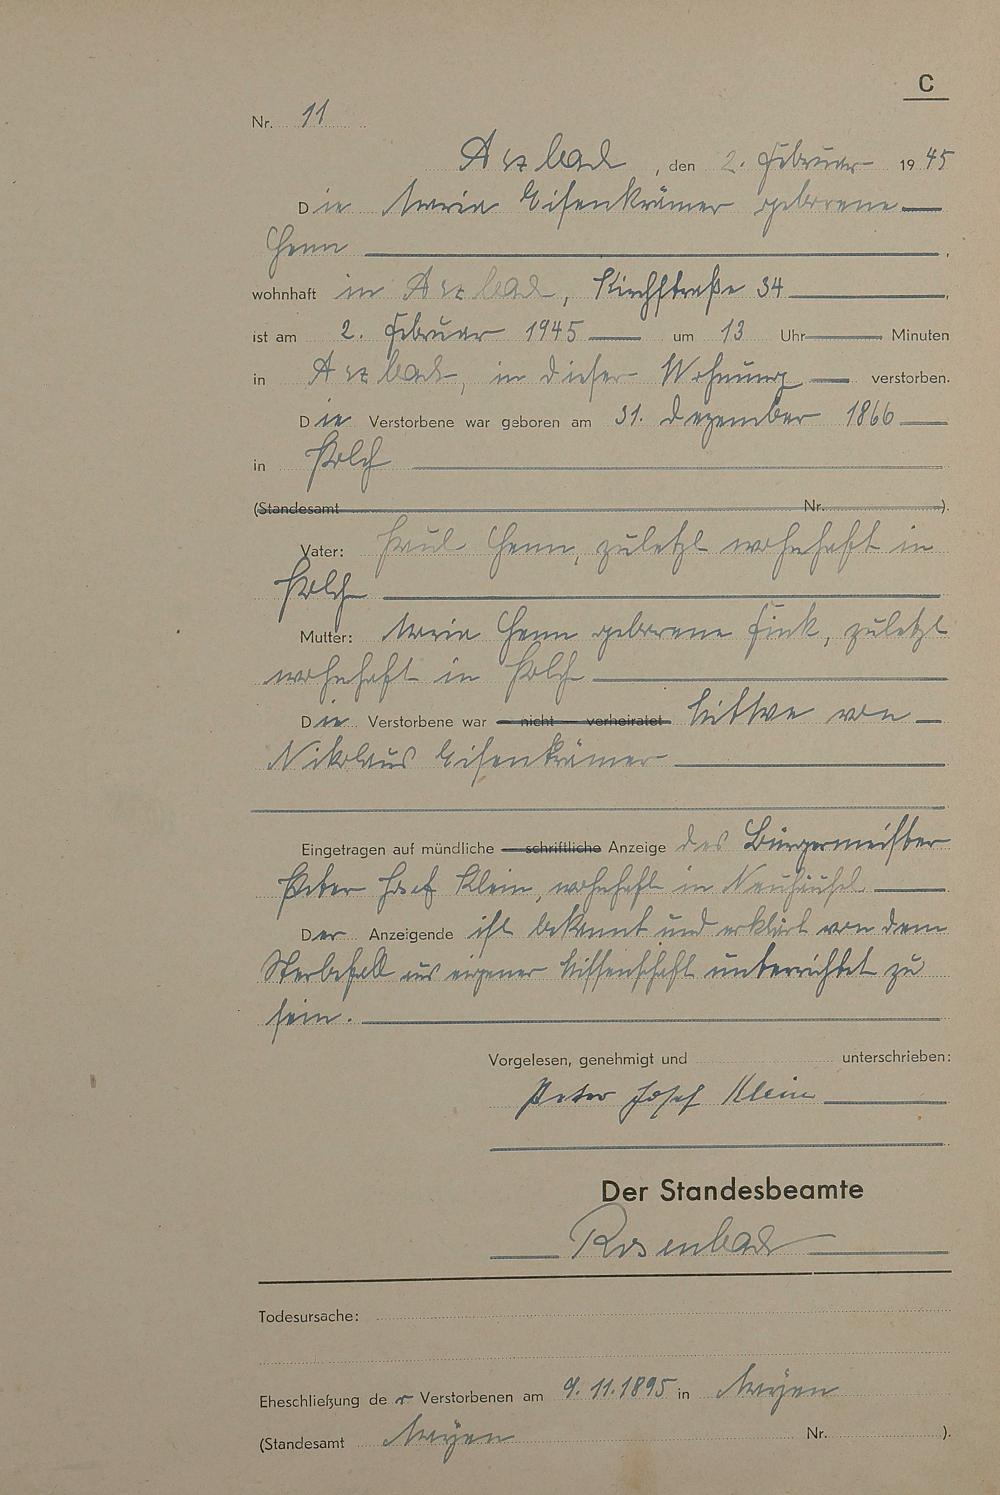 C
Nr. 11
Arzbach, den 2. Februar 1945
Die Maria Eisenkrämer geborene
Henn
wohnhaft in Arzbach, Kirchstraße 34
ist am 2. Februar 1945 um 13 Uhr Minuten
in Arzbach, in dieser Wohnung verstorben.
Die Verstorbene war geboren am 31. Dezember 1866
in Polch
(Standesamt Nr. ).
Vater: Paul Henn, zuletzt wohnhaft in
Polch
Mutter: Maria Henn geborene Fink, zuletzt
wohnhaft in Polch
Die Verstorbene war nicht verheiratet Witwe von
Nikolaus Eisenkrämer
Eingetragen auf mündliche schriftliche Anzeige des Bürgermeister
Peter Josef Klein, wohnhaft in Neuhäusel
Der Anzeigende ist bekannt und erklärt von dem
Sterbefall aus eigener Wissenschaft unterrichtet zu
sein.
Vorgelesen, genehmigt und unterschrieben:
Peter Josef Klein
Der Standesbeamte
Rosenbach
Todesursache:
Eheschließung der Verstorbenen am 9.11.1895 in Mayen
(Standesamt Mayen Nr. ).